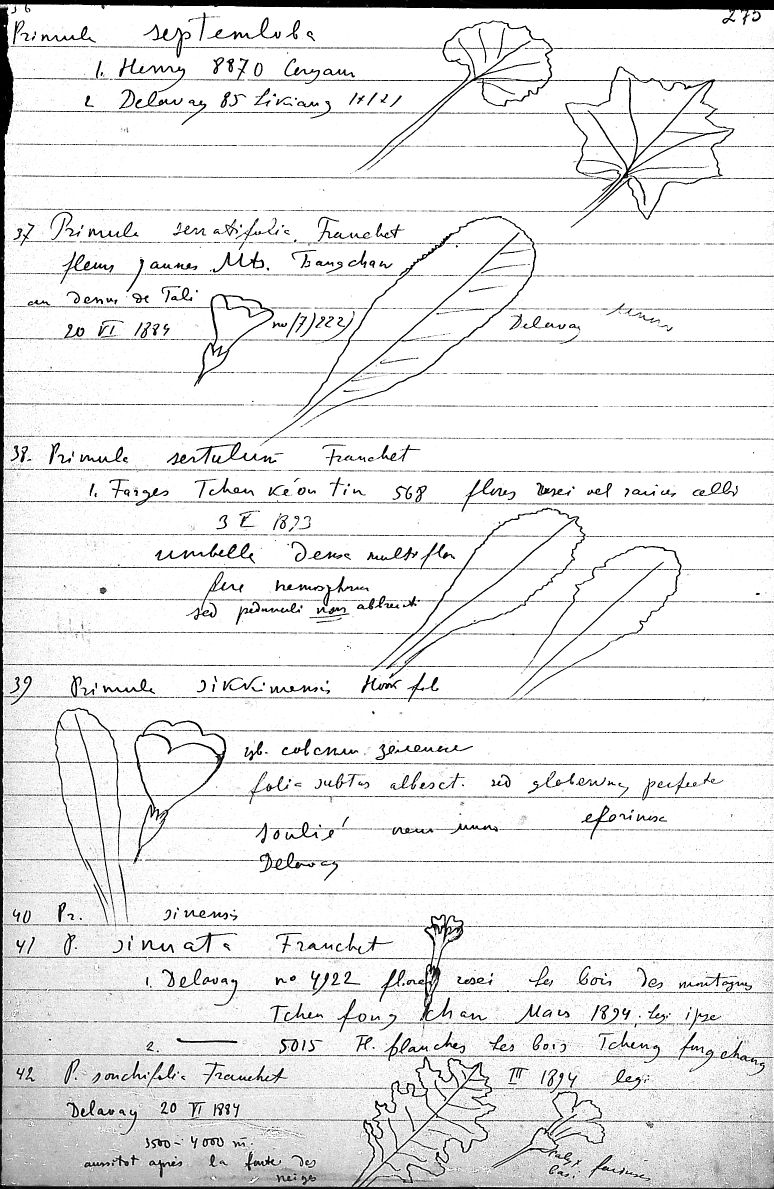 36 275
Primula septemloba
1. Henry 8870
2 Delavay 85 Likiang
37 Primula serratifolia. Franchet
fleurs jaunes. Mts. Tsangchan
au dessus de Tali
20 VI 1884 no
Delavay
38. Primula sertulum Franchet
1. Farges Tchen kéou tin 568 flores rosei vel
3 V 1893
umbella densa multiflor
fere
sed pedunculi non
39 Primula sikkimensis Hook fil
folia subtus albesct. sed perfecte
efarinosa
Soulié
Delavay
40 Pr. sinensis
41 P. sinuata Franchet
1. Delavay no 4922 flores rosei. Les bois des montagnes
Tchen fong chan Mars 1894. legi ipse
2. — 5015 Fl. blanches Les bois Tcheng fong chang
III 1894 legi
42 P. sonchifolia Franchet
Delavay 20 VI 1884
3500-4000 m.
aussitot après la fonte des
neiges